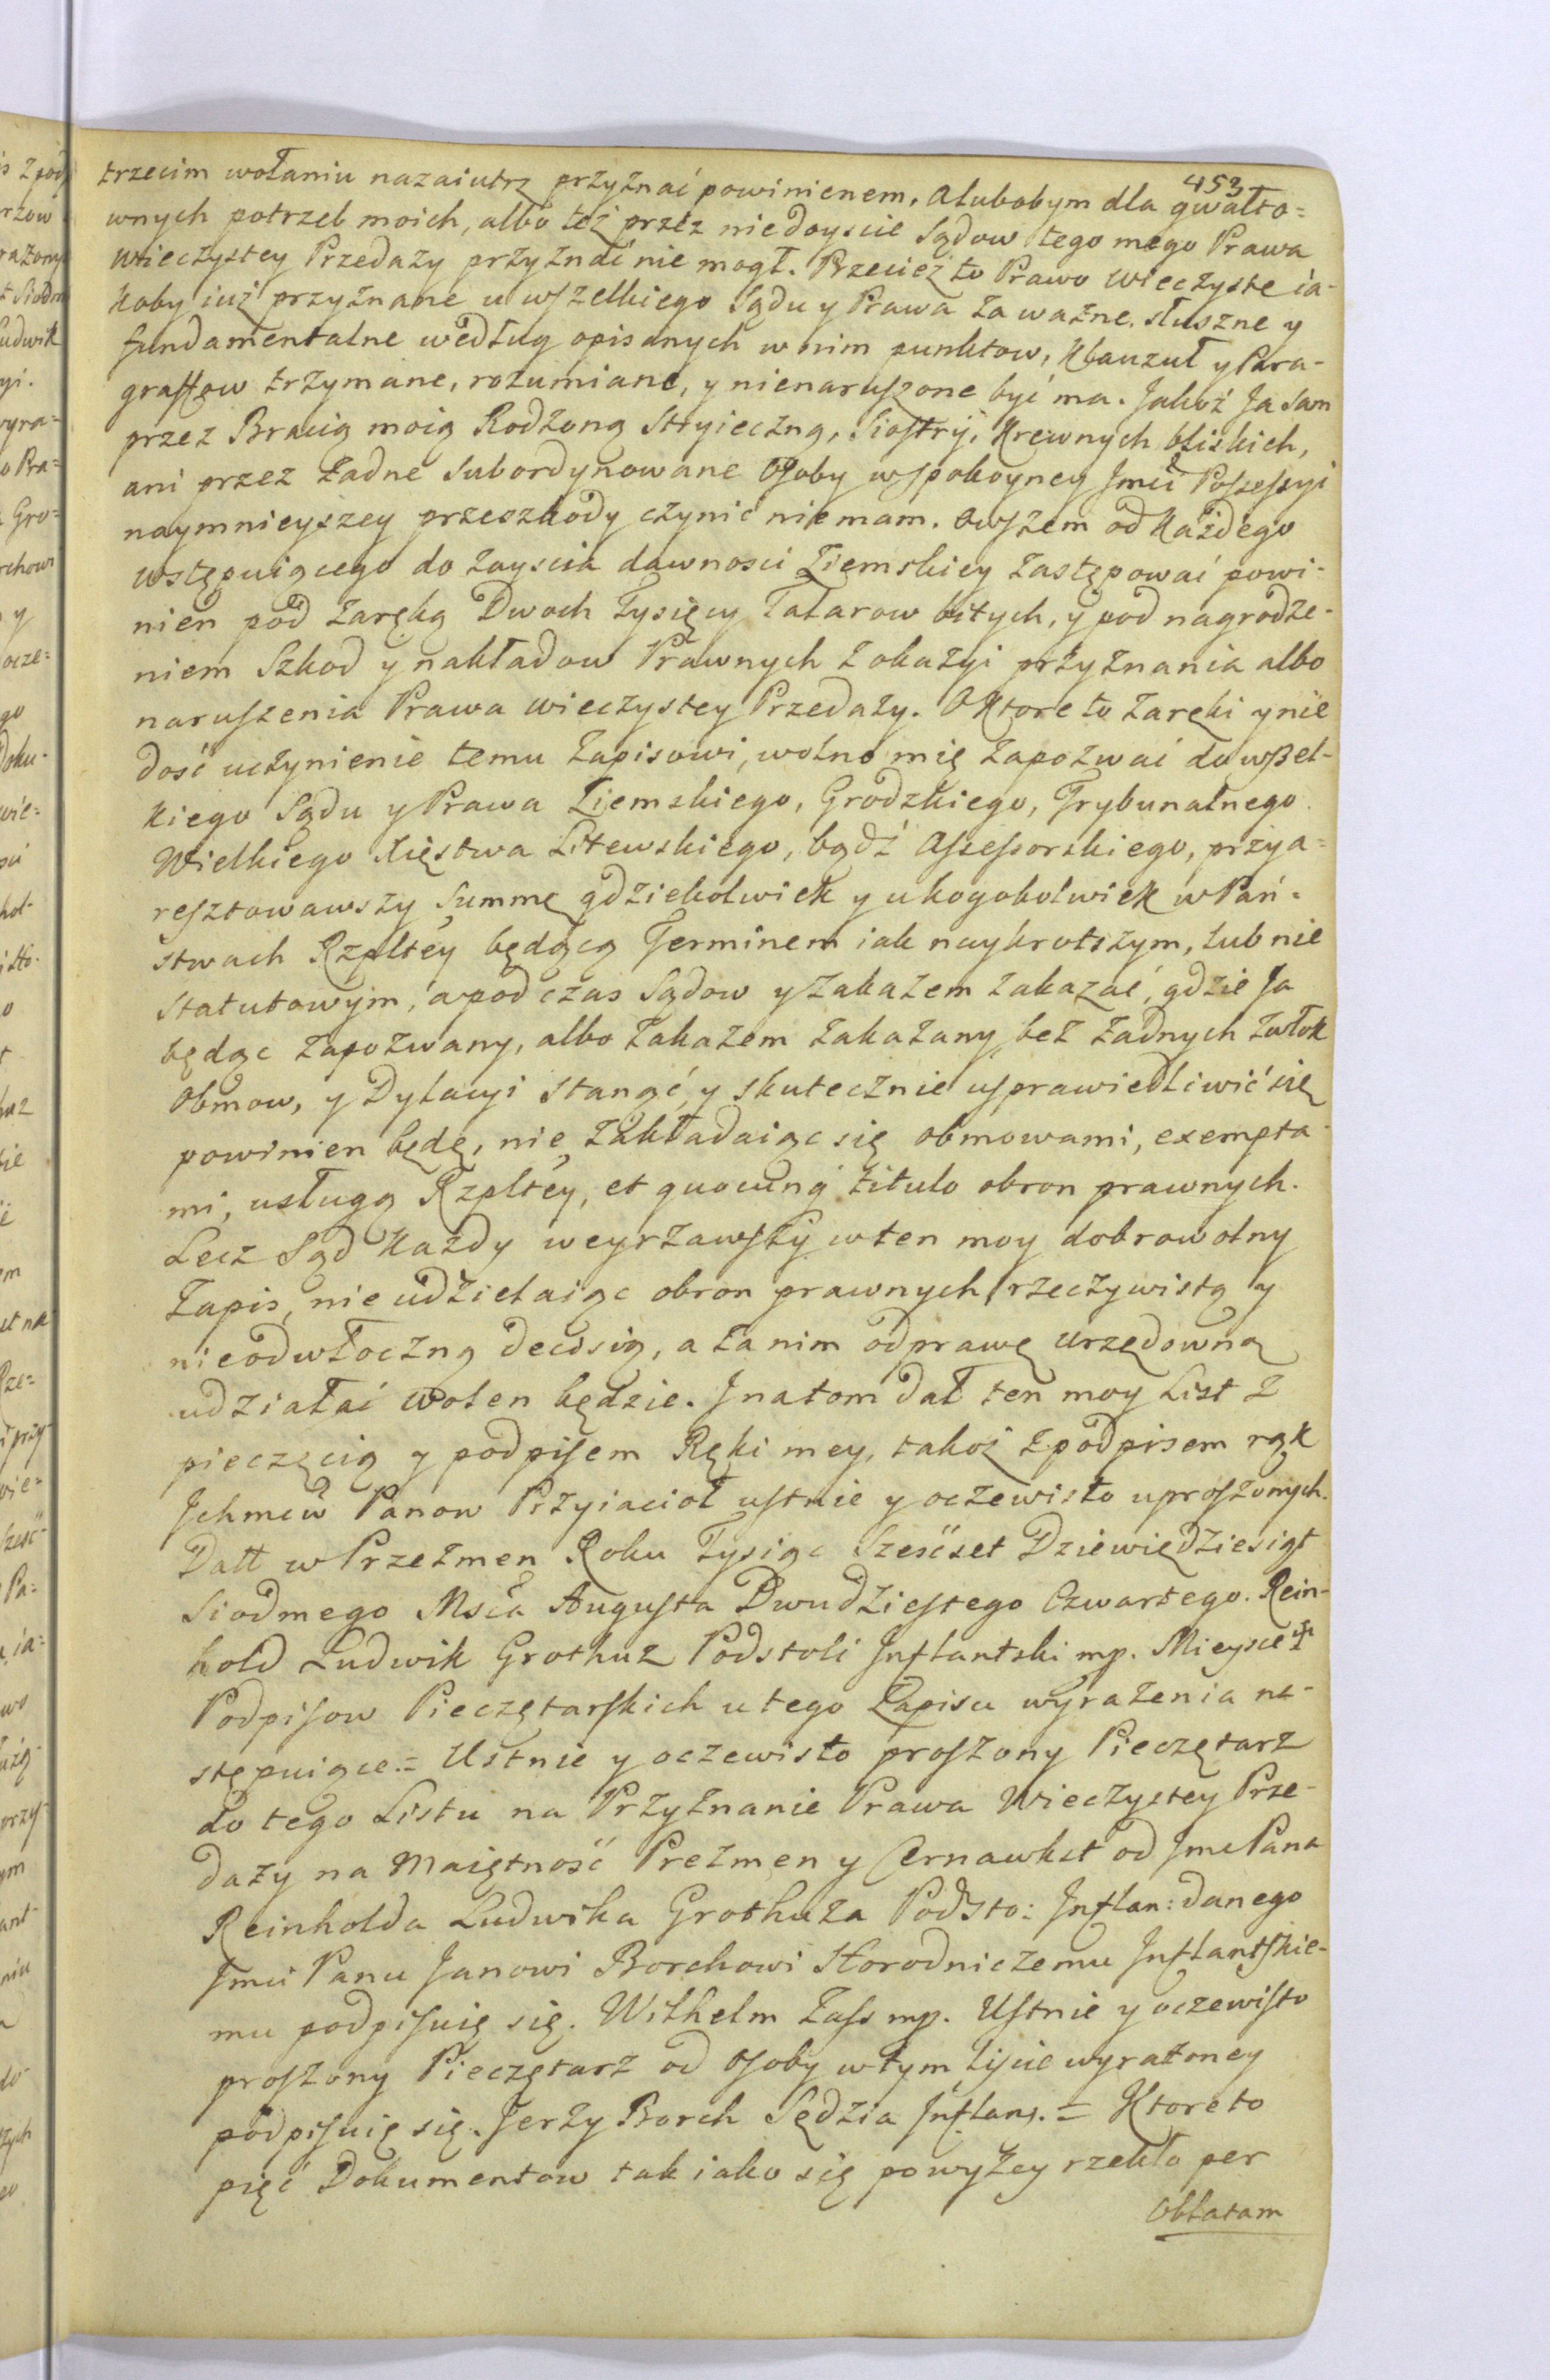 453
trzecim wołaniu nazaiutrz przyznać powinienem. Alubobym dla gwałto=
wnych potrzeb moich, albo też przez niedoyscie Sądow tego mego Prawa
wieczystey Przedaży przyznać nie mogł. Przecież to Prawo wieczyste ia-
koby iuż przyznane u wszelkiego Sądu y Prawa za ważne, słuszne y
fundamentalne według opisanych w nim punktow, Klauzuł y Para-
graffow trzymane, rozumiane, y nienaruszone być ma. Jakoż Ja Sam
przez Bracią moią Rodzoną Stryieczną, Siostry, Krewnych bliskich,
ani przez żadne Subordynowane Osoby w spokoyney Jmci Possessyi
naymnieyszey przeszkody czynić nie mam. Owszem od Każdego
wstępuiącego do zayscia dawnosci Ziemskiey zastępować powi-
nien pod zaręką Dwoch Tysięcy Talarow bitych, y pod nagrodze-
niem Szkod y nakładow Prawnych z okazyi przyznania albo
naruszenia Prawa wieczystey Przedaży. O Ktore to zaręki y nie
dość uczynienie temu Zapisowi, wolno mię zapozwać do wszel-
kiego Sądu y Prawa Ziemskiego, Grodzkiego, Trybunalnego
Wielkiego Xięstwa Litewskiego, bądź Assessorskiego, przya=
resztowawszy Summę gdziekolwiek y u kogokolwiek w Pań-
stwach Rzpltey będącą Terminem iak naykrotszym, lub nie
Statutowym, a pod czas Sądow y Zakazem zakazać, gdzie Ja
będąc zapozwany, albo zakazem zakazany bez żadnych zwłok
Obmow, y Dylacyi stanąć, y skutecznie usprawiedliwić się
powinien będę, nie zakładaiąc się obmowami, exempta-
mi, usługą Rzpltey, et quocunq titulo obron prawnych.
Lecz Sąd Każdy weyrzawszy w ten moy dobrowolny
Zapis, nie udzielaiąc obron prawnych rzeczywistą y
nieodwłoczną decisią, a za nim odprawę Urzędowną
udziałać wolen będzie. J na tom dał ten moy List z
pieczęcią y podpisem Ręki mey, takoż z podpisem rąk
Jchmciw Panow Przyiacioł ustnie y oczewisto uproszonych.
Datt w Przezmen Roku Tysiąc Szesćset Dziewiędziesiąt
Siodmego Msca Augusta Dwudziestego Czwartego. Rein-
hold Ludwik Grothuz Podstoli Inflantski mp. Mieysce
Podpisow Pieczętarskich u tego Zapisu wyrażenia na-
stępuiące.= Ustnie y oczewisto proszony Pieczętarz
do tego Listu na Przyznanie Prawa Wieczystey Prze-
daży na Maiętność Prezmen y Cernawkst od Jmc Pana
Reinholda Ludwika Grothuza Podsto: Inflan: danego
Jmci Panu Janowi Borchowi Horodniczemu Inflantskie-
mu podpisuię się. Wilhelm Zass mp. Ustnie y oczewisto
proszony Pieczętarz od Osoby w tym liscie wyrażoney
podpisuię się. Jerzy Borch Sędzia Inflans. = Ktore to
pięć Dokumentow tak iako się powyżey rzekło per
Oblatam